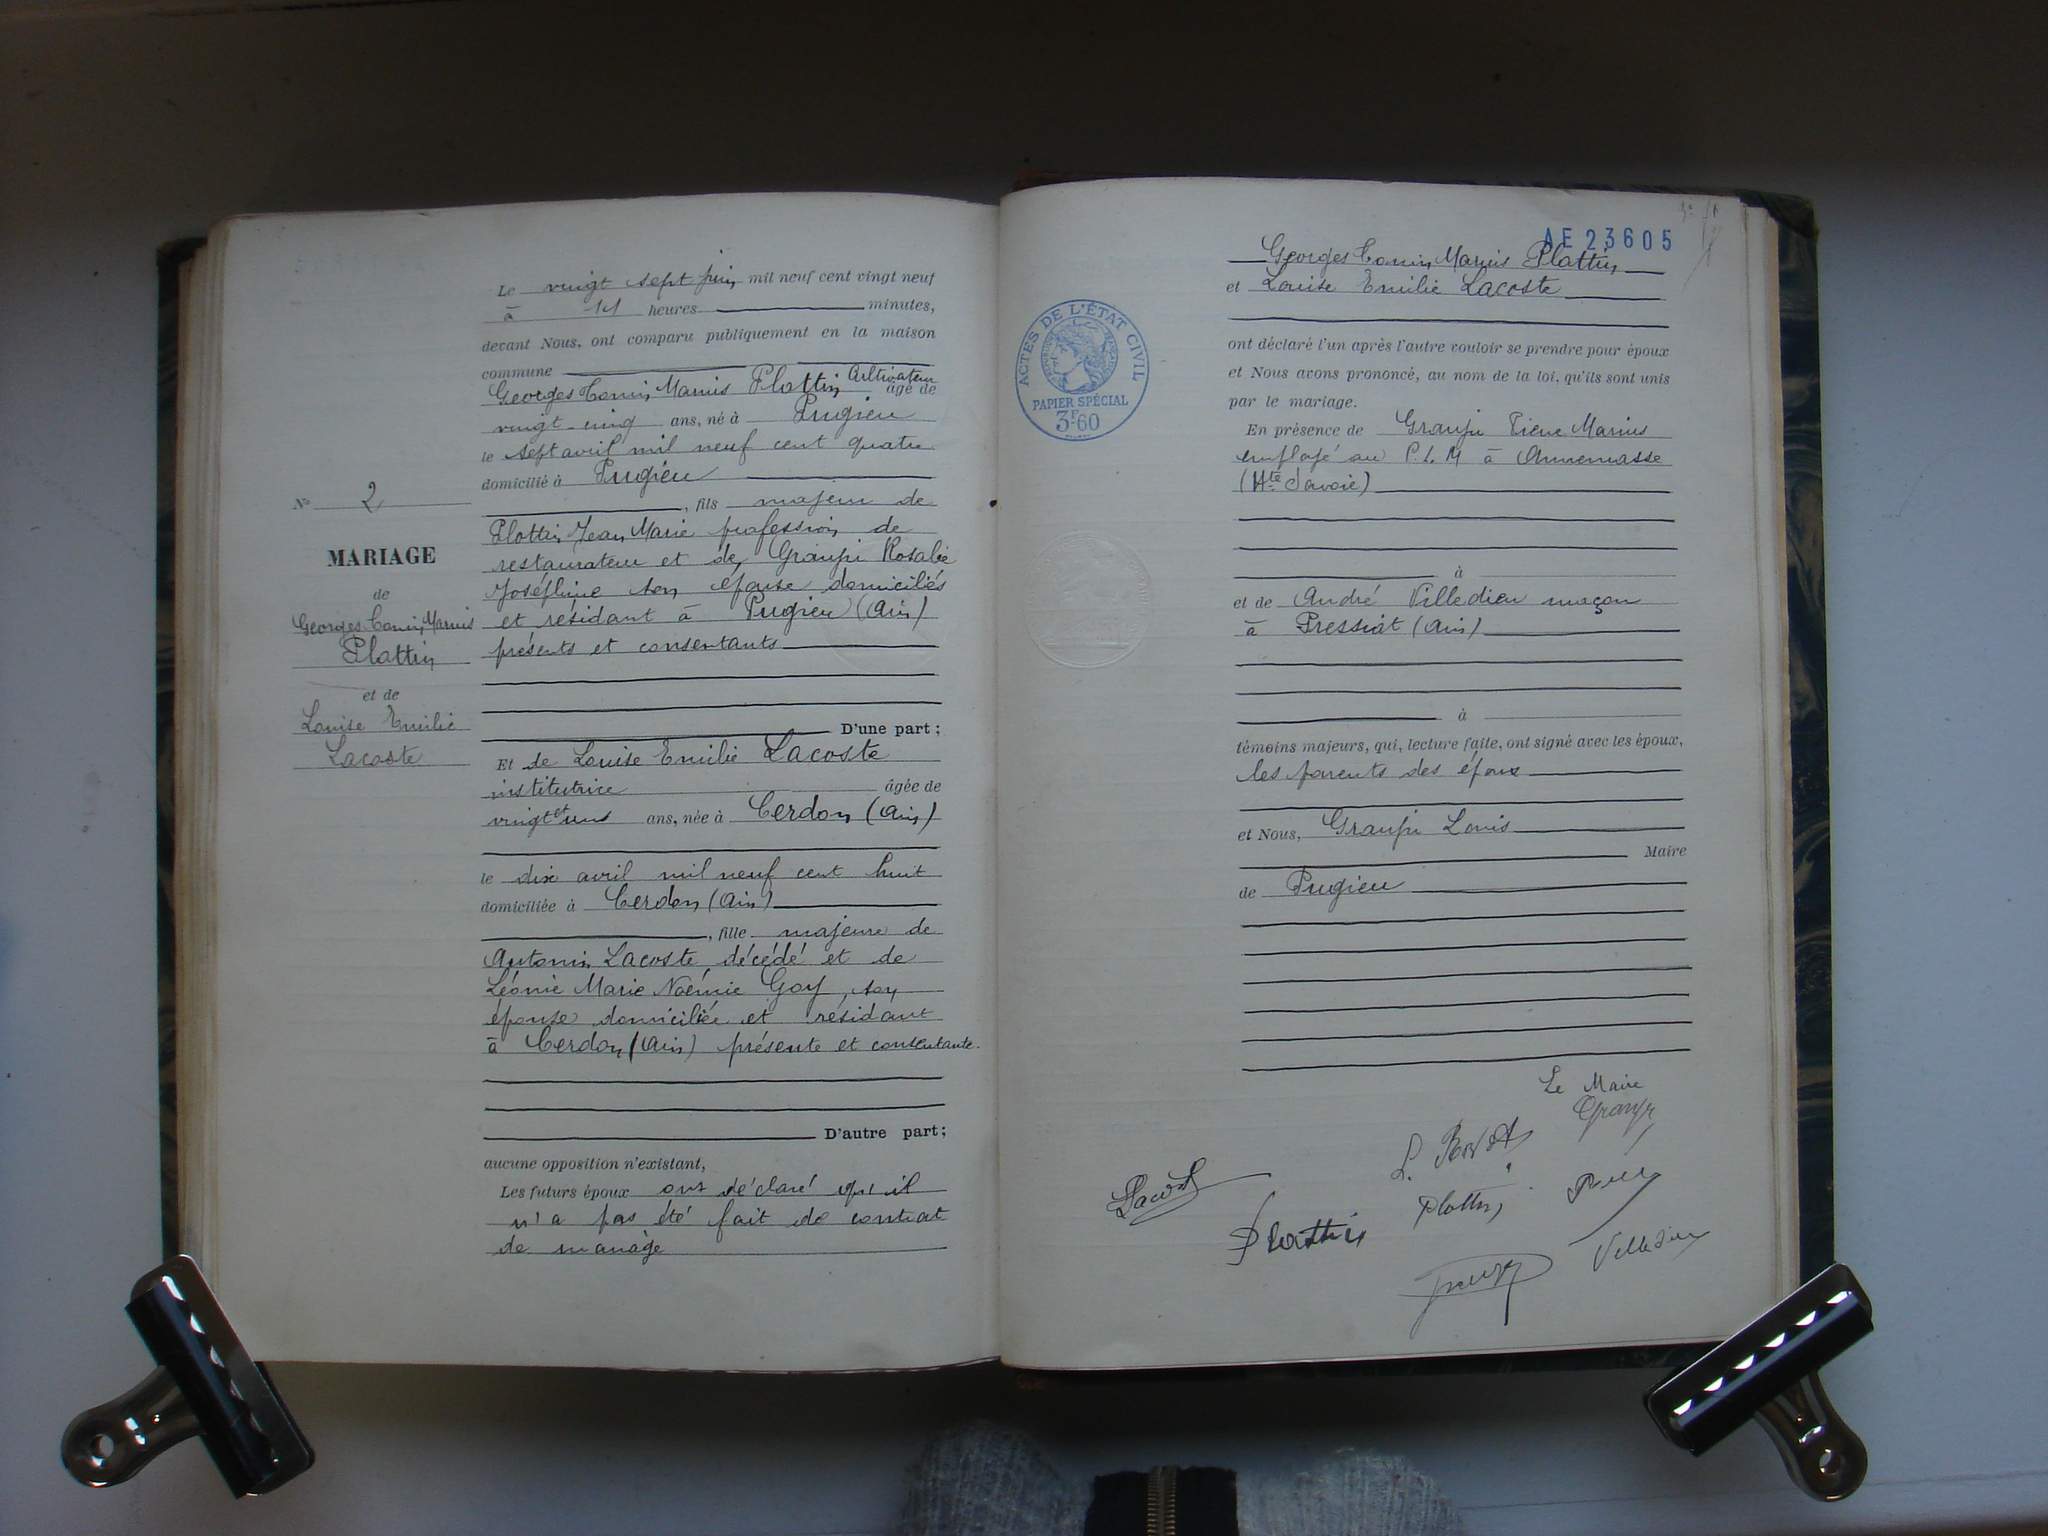 Le vingt sept juin mil neuf cent vingt neuf
à 11 heures minutes,
devant Nous, ont comparu publiquement en la maison
commune
Georges Tonin Marius Plottin Cultivateur âgé de
vingt-cinq ans, né à Pugieu
le sept avril mil neuf cent quatre
domicilié à Pugieu
, fils majeur de
Plottin Jean Marie profession de
restaurateur et de Graupi Rosalie
Joséphine son épouse domiciliés
et résidant à Pugieu (Ain)
présents et consentants
D'une part;
Et de Louise Emilie Lacoste
institutrice âgée de
vingt et un ans, née à Cerdon (Ain)
le dix avril mil neuf cent huit
domiciliée à Cerdon (Ain)
, fille majeure de
Antonin Lacoste décédé et de
Léonie Marie Noémie Goy, son
épouse domiciliée et résidant
à Cerdon (Ain) présente et consentante.
D'autre part;
aucune opposition n'existant,
Les futurs époux ont déclaré qu'il
n'a pas été fait de contrat
de mariage
No 2
MARIAGE
de
Georges Tonin Marius
Plottin
et de
Louise Emilie
Lacoste
AE 23605
Georges Tonin Marius Plottin
et Louise Emilie Lacoste
ACTES DE L'ÉTAT CIVIL
PAPIER SPÉCIAL
3F60
ont déclaré l'un après l'autre vouloir se prendre pour époux
et Nous avons prononcé, au nom de la loi, qu'ils sont unis
par le mariage.
En présence de Graupi Pierre Marius
employé au P.L.M à Annemasse
(Hte Savoie)
à
et de André Villedieu maçon
à Pressiat (Ain)
à
témoins majeurs, qui, lecture faite, ont signé avec les époux,
les parents des époux
et Nous, Graupi Louis
Maire
de Pugieu
Le Maire
Graupi
Lacoste
Plottin
Plottin
Villedieu